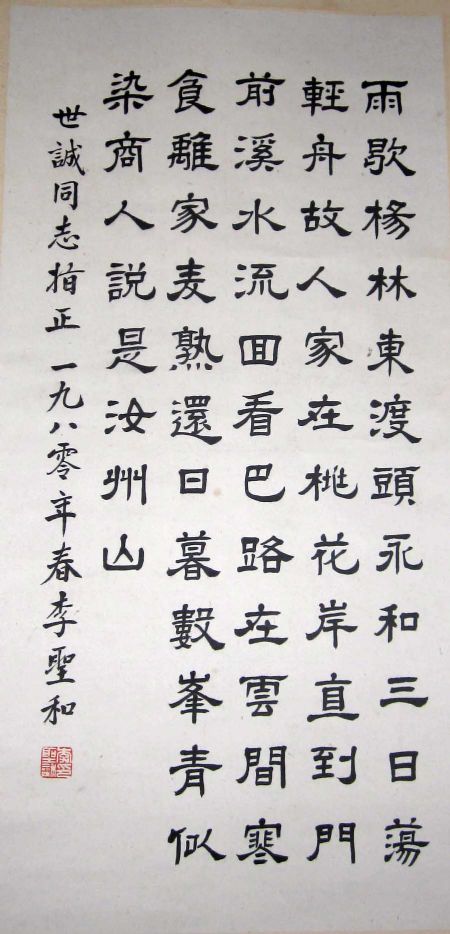 雨歇楊林東渡頭永和三日蕩
輕舟故人家在桃花岸直到門
前溪水流回看巴路在雲間寒
食離家麦熟還日暮數峯青似
染商人説是汝州山
世誠同志指正 一九八零年春李聖和